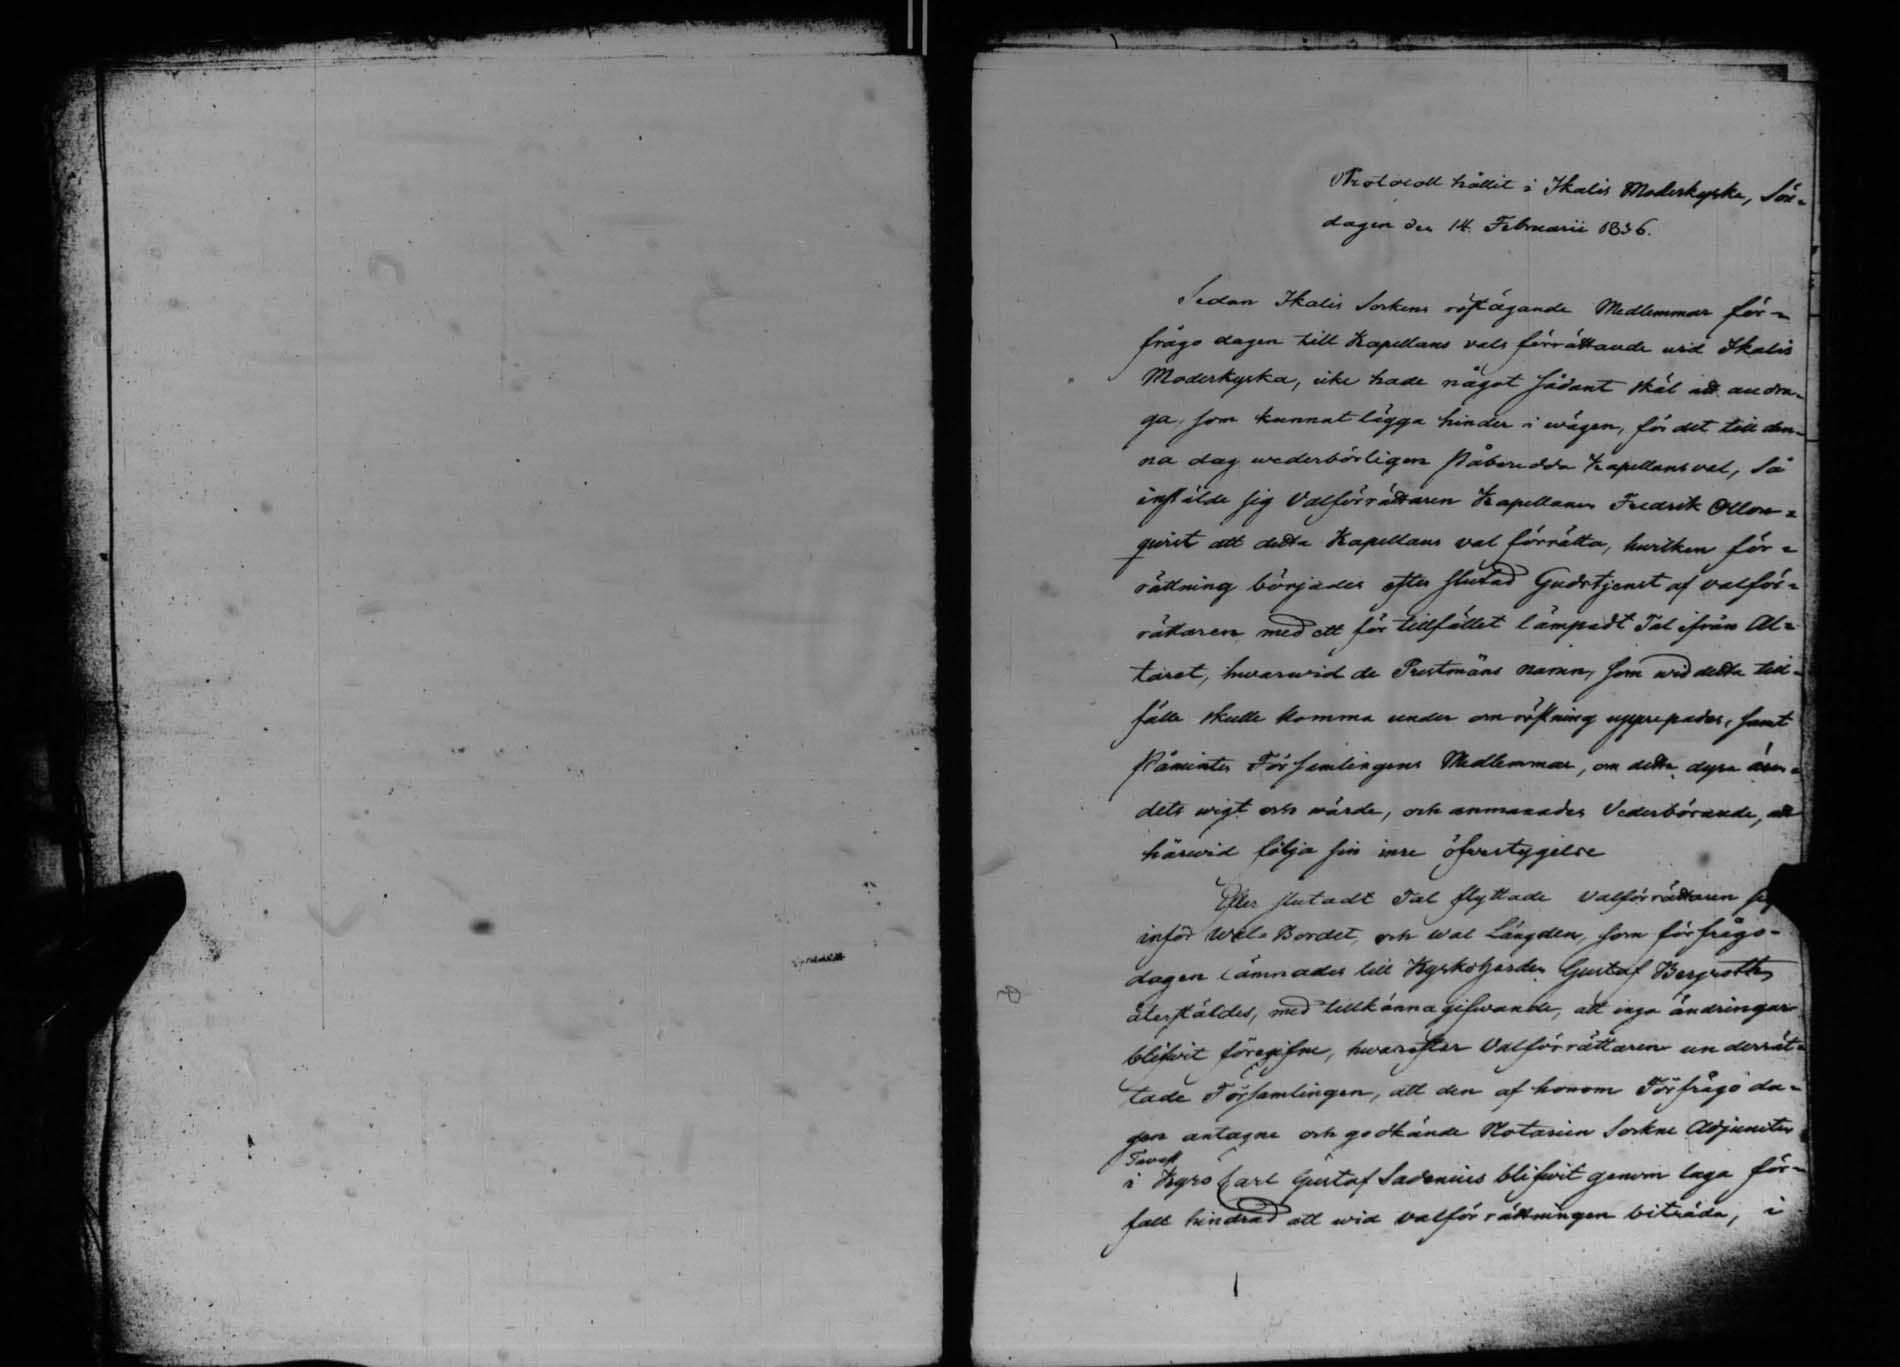 Protocoll hållit i Ikalis Moderkyrka, Sön-
dagen den 14. Februarii 1836.
Sedan Ikalis Sockens röstägande Medlemmar för-
frågo dagen till Kapellans vals förrättande wid Ikalis
Moderkyrka, icke hade något sådant skäl att andra-
ga, som kunnat lägga hinder i wägen, för det till den-
na dag wederbörligen påberedda Kapellansval, Så
instälde sig Valförrättaren Kapellanen Fredrik Ollon-
quist att detta Kapellans val förrätta, hwilken för-
rättning börjades efter slutad Gudstjenst af valför-
rättaren med ett för tillfället lämpadt Tal ifrån Al-
taret, hwarwid de Prestmäns namn, som wid detta till-
fälle skulle komma under omröstning upprepades, samt
påmintes Församlingens Medlemmar, om detta dyra ären-
dets wigt och wärde, och anmanades Vederbörande, att
härwid följa sin inre öfvertygelse
Efter slutadt Tal flyttade Valförrättaren sig
inför Wal-Bordet, och Wal Längden, som förfrågo-
dagen lämnades till Kyrkoherden Gustaf Bergroth,
återstäldes, med tillkännagifwande, att inga ändringar
blifwit föregifne, hwarefter Valförrättaren underrät-
tade Församlingen, att den af honom Förfrågo da-
gen antagne och godkände Notarien Sockne Adjuncten
Tavast
i Kyro Carl Gustaf Sadenius blifwit genom laga för-
fall hindrad att wid valförrättningen biträda, i